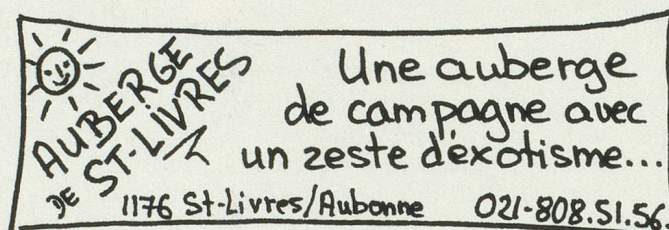 AUBERGE
DE ST-LIVRES
Une auberge
de campagne avec
un zeste d'éxotisme...
1176 St-Livres/Aubonne 021-808.51.56